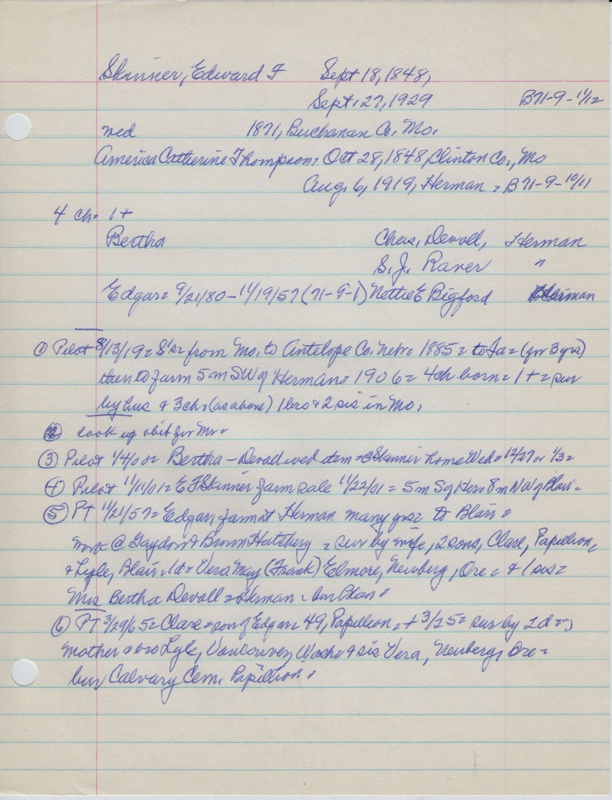 Skinner, Edward F Sept 18, 1848,
Sept. 27, 1929 B71-9-11/12
wed 1871, Buchanan Co. Mo.
America Catherine Thompson, Oct 28, 1848, Clinton Co., Mo
Aug. 6, 1919, Herman = B71-9-10/11
4 ch. 1+
Bertha Chas. Devoll, Herman
S. J. Raver "
Edgar = 9/21/80-11/19/57 (71-9-1) Nettie E Bigford Herman
① Pilot 8/13/19 = S's = from Mo. to Antelope Co. Nebr = 1885 = to Ia = (for 3 yrs)
then to farm 5 m SW of Herman = 1906 = 4 ch born = 1+ = sur
by hus & 3 ch. (as above) 1 bro & 2 sis in Mo.
② look up obit for Mr =
③ Pilot 1/4/00 = Bertha - Devoll wed item = @ Skinner home Wed = 12/27 or 1/3 =
④ Pilot 11/11/01 = E F Skinner farm sale 11/22/01 = 5 m S of Her = 8 m NW of Blair =
⑤ PT 11/21/57 = Edgar farm at Herman many yrs = to Blair =
wrk @ Gaydou & Hatchery = sur by wife, 2 sons, Clare, Papillion,
& Lyle, Blair, 1 d = Vera May (Frank) Elmore, Newberg, Ore = & 1 sis =
Mrs Bertha Devoll = Herman =
⑥ PT 3/29/65 = Clare = son of Edgar = 49, Papillion, + 3/25 = sur by 2 d =,
mother & bro Lyle, Vancouver, Wash & sis Vera, Newberg, Ore =
bur Calvary Cem, Papillion =